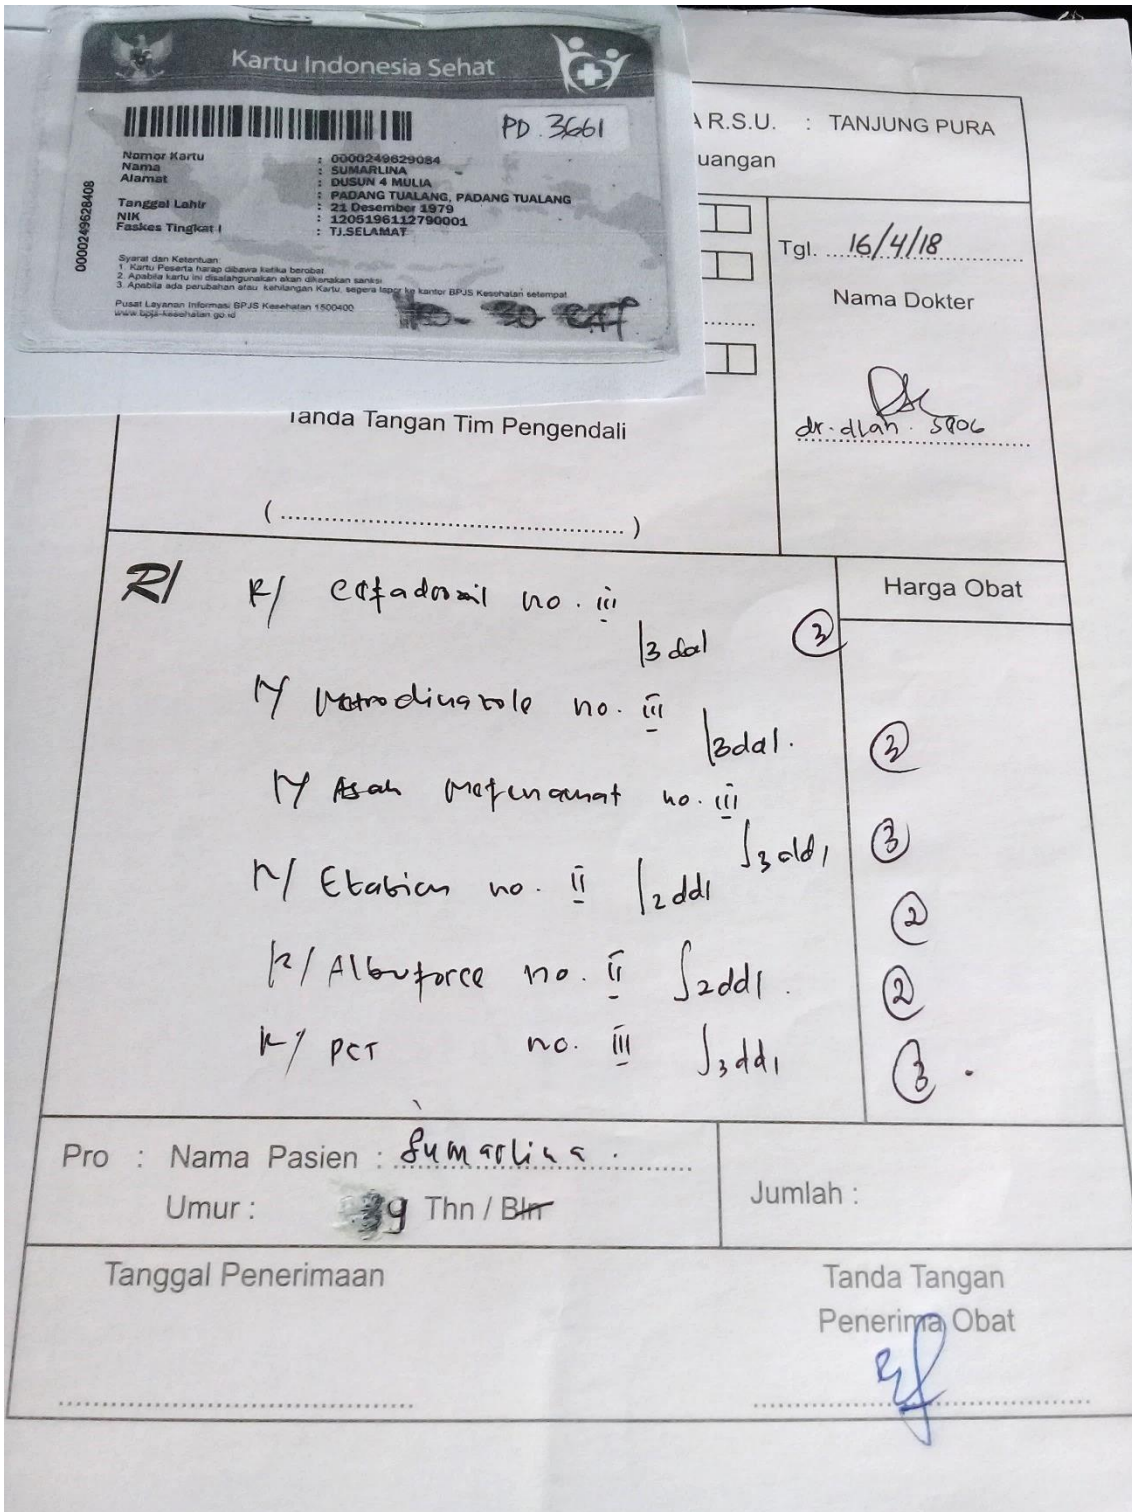 Kartu Indonesia Sehat
PD. 3661
Nomor Kartu : 0000249629084
Nama : SUMARLINA
Alamat : DUSUN 4 MULIA
PADANG TUALANG, PADANG TUALANG
Tanggal Lahir : 21 Desember 1979
NIK : 1205196112790001
Faskes Tingkat I : TJ.SELAMAT
0000249628408
Syarat dan Ketentuan:
1. Kartu Peserta harap dibawa ketika berobat
2. Apabila kartu ini disalahgunakan akan dikenakan sanksi
3. Apabila ada perubahan atau kehilangan Kartu, segera lapor ke kantor BPJS Kesehatan setempat
Pusat Layanan Informasi BPJS Kesehatan 1500400
www.bpjs-kesehatan.go.id
A R.S.U. : TANJUNG PURA
uangan
Tgl. 16/4/18
Nama Dokter
dr. dLan.
Tanda Tangan Tim Pengendali
(....................)
R/
Harga Obat
R/ Cefadroxil no. iii
3dd1 3
R/ Metrodinazole no. iii
3dd1. 3
R/ Asam Mefenamat no. iii
3dd1 3
R/ Etabion no. ii 2dd1 2
R/ Albuforce no. ii 2dd1. 2
R/ PCT no. iii 3dd1 3
Pro : Nama Pasien : Sumarlina.
Umur : 39 Thn / Bln
Jumlah :
Tanggal Penerimaan
Tanda Tangan
Penerima Obat